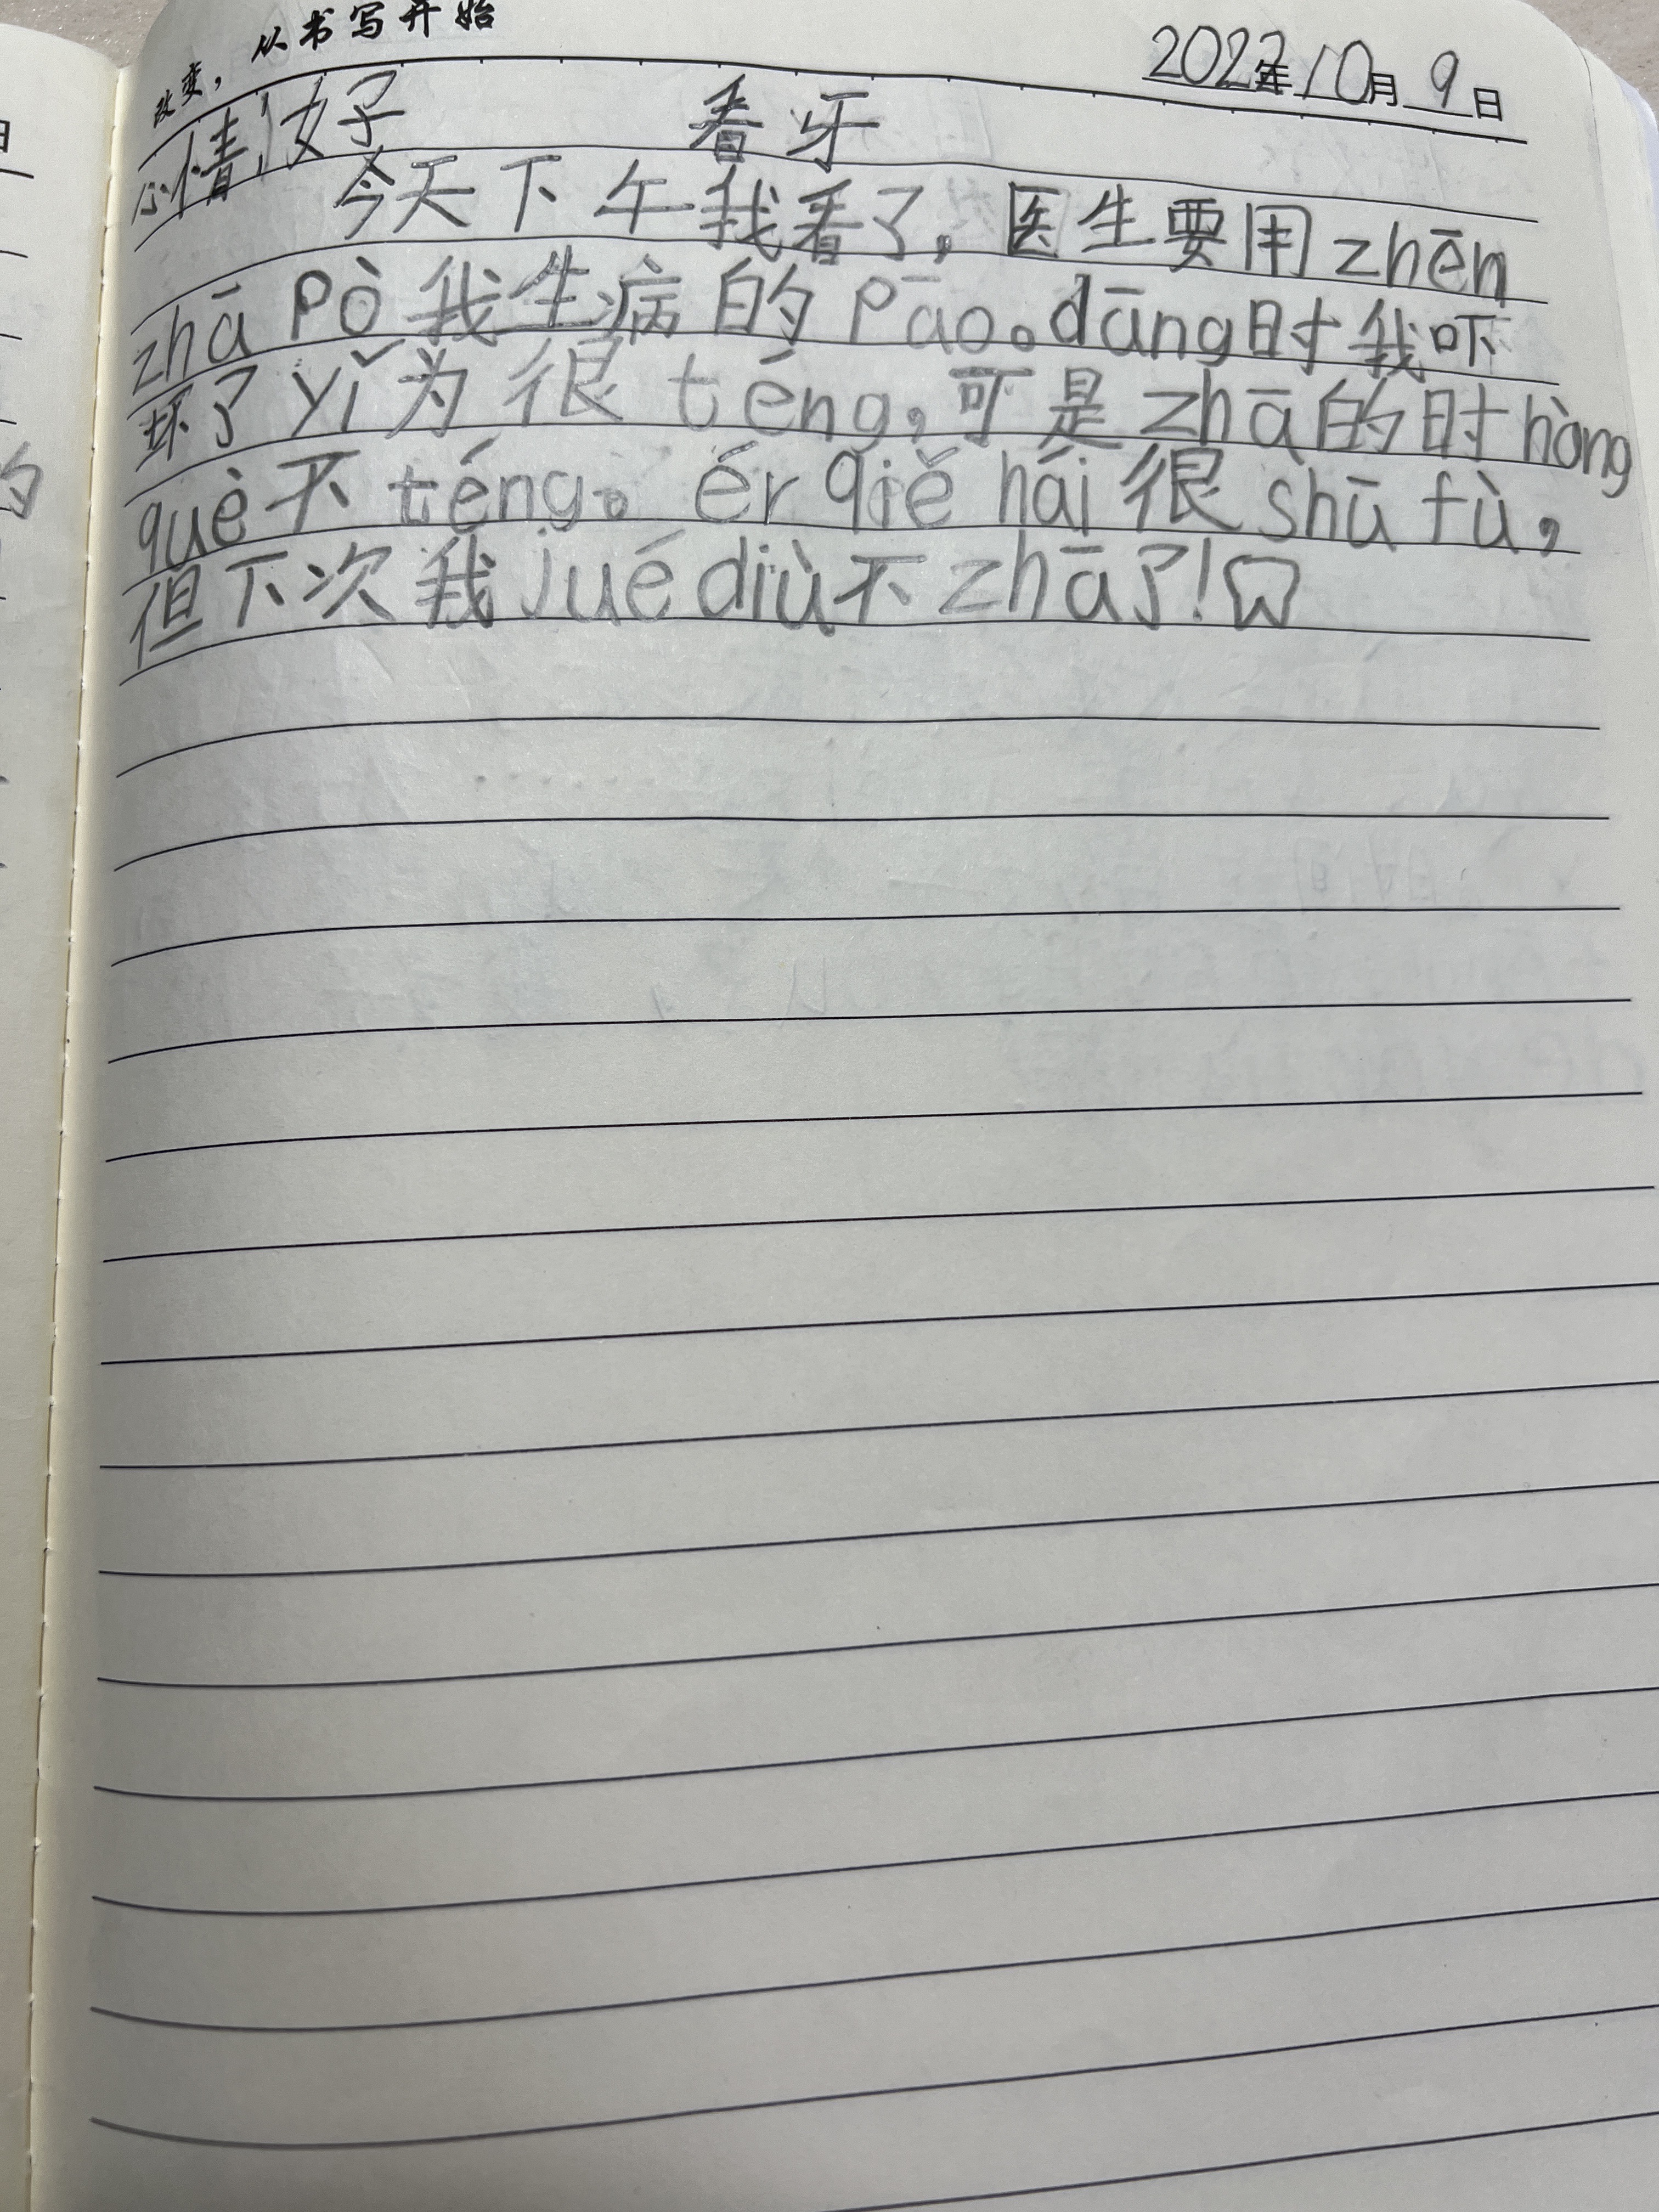 改变，从书写开始
2022年10月9日
小倩，好 看牙
今天下午我看了，医生要用zhēn
zhā pò我生病的pāo。dāng时我吓
坏了yǐ为很téng，可是zhā的时hòng
què不téng。ér qiě hái很shū fù，
但下次我jué diù不zhā了！
日
的